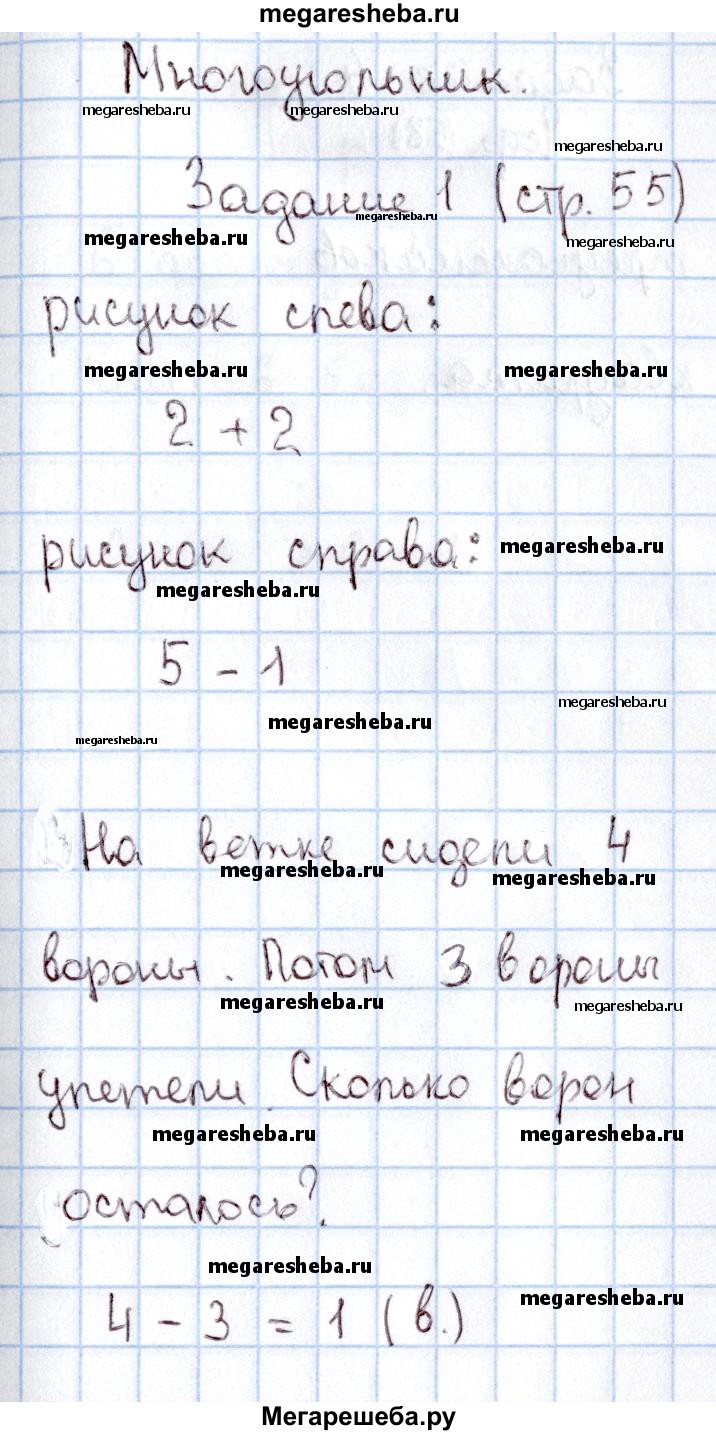 megaresheba.ru
Многоугольник.
megaresheba.ru megaresheba.ru
megaresheba.ru
Задание 1 (стр. 55)
megaresheba.ru
megaresheba.ru megaresheba.ru
рисунок слева:
megaresheba.ru megaresheba.ru
2 + 2
рисунок справа: megaresheba.ru
megaresheba.ru
5 - 1
megaresheba.ru
megaresheba.ru
megaresheba.ru
На ветке сидели 4
megaresheba.ru megaresheba.ru
вороны. Потом 3 вороны
megaresheba.ru megaresheba.ru
улетели. Сколько ворон
megaresheba.ru megaresheba.ru
осталось?
megaresheba.ru
megaresheba.ru
4 - 3 = 1 (в.)
Мегарешеба.ру